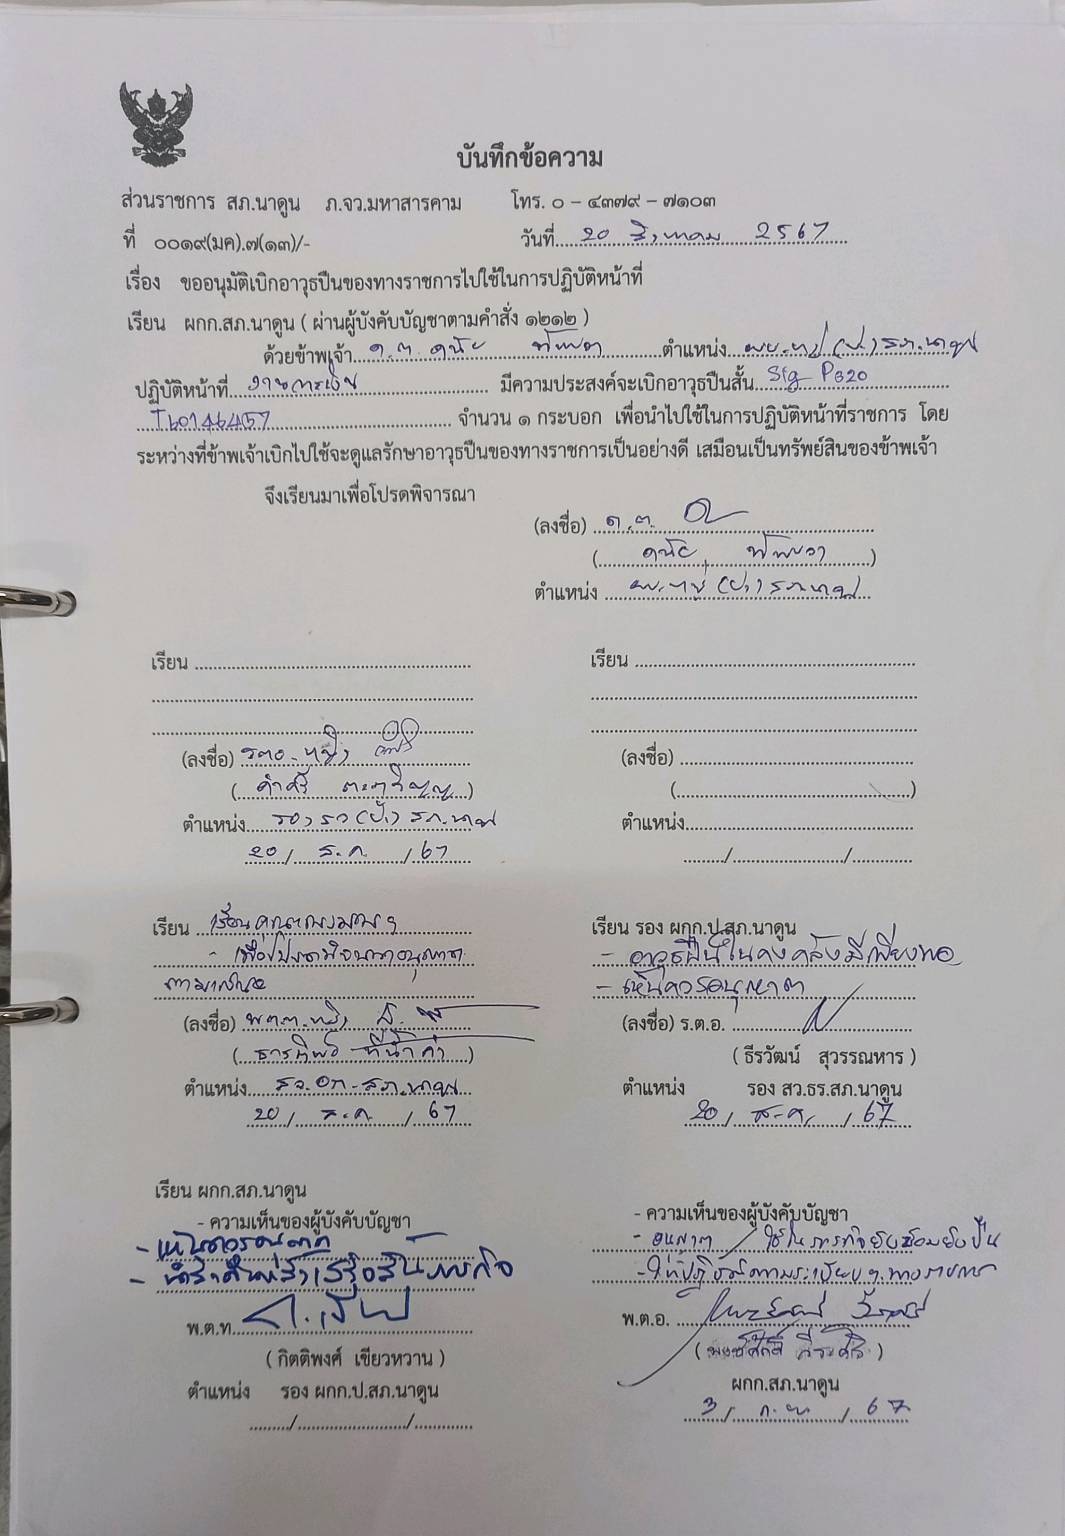 บันทึกข้อความ
ส่วนราชการ สภ.นาดูน ภ.จว.มหาสารคาม โทร. ๐ – ๔๓๗๙ – ๗๑๐๓
ที่ ๐๐๑๙(มค).๗(๑๓)/- วันที่ 20 สิงหาคม 2567
เรื่อง ขออนุมัติเบิกอาวุธปืนของทางราชการไปใช้ในการปฏิบัติหน้าที่
เรียน ผกก.สภ.นาดูน ( ผ่านผู้บังคับบัญชาตามคำสั่ง ๑๒๑๒ )
ด้วยข้าพเจ้า ด.ต. ดนัย ตำแหน่ง ผบ.หมู่ (ป.) สภ.นาดูน
ปฏิบัติหน้าที่ มีความประสงค์จะเบิกอาวุธปืนสั้น Sig P320
จำนวน ๑ กระบอก เพื่อนำไปใช้ในการปฏิบัติหน้าที่ราชการ โดย
ระหว่างที่ข้าพเจ้าเบิกไปใช้จะดูแลรักษาอาวุธปืนของทางราชการเป็นอย่างดี เสมือนเป็นทรัพย์สินของข้าพเจ้า
จึงเรียนมาเพื่อโปรดพิจารณา
(ลงชื่อ) ด.ต.
( ดนัย )
ตำแหน่ง ผบ.หมู่ (ป.) สภ.นาดูน
เรียน
(ลงชื่อ) ร.ต.อ.หญิง
( )
ตำแหน่ง รอง สว.(ป.) สภ.นาดูน
20 / ส.ค. / 67
เรียน
(ลงชื่อ)
( )
ตำแหน่ง
/ /
เรียน
- เพื่อโปรดพิจารณาอนุญาต
ตามเสนอ
(ลงชื่อ) พ.ต.ต.หญิง
( )
ตำแหน่ง สว.อก.สภ.นาดูน
20 / ส.ค. / 67
เรียน รอง ผกก.ป.สภ.นาดูน
- อาวุธปืนในคงคลังมีเพียงพอ
- เห็นควรอนุญาต
(ลงชื่อ) ร.ต.อ.
( ธีรวัฒน์ สุวรรณหาร )
ตำแหน่ง รอง สว.ธร.สภ.นาดูน
20 / ส.ค. / 67
เรียน ผกก.สภ.นาดูน
- ความเห็นของผู้บังคับบัญชา
- เห็นควรอนุญาต
พ.ต.ท.
( กิตติพงศ์ เขียวหวาน )
ตำแหน่ง รอง ผกก.ป.สภ.นาดูน
/ /
- ความเห็นของผู้บังคับบัญชา
- อนุญาต
พ.ต.อ.
( )
ผกก.สภ.นาดูน
3 / ก.ย. / 67